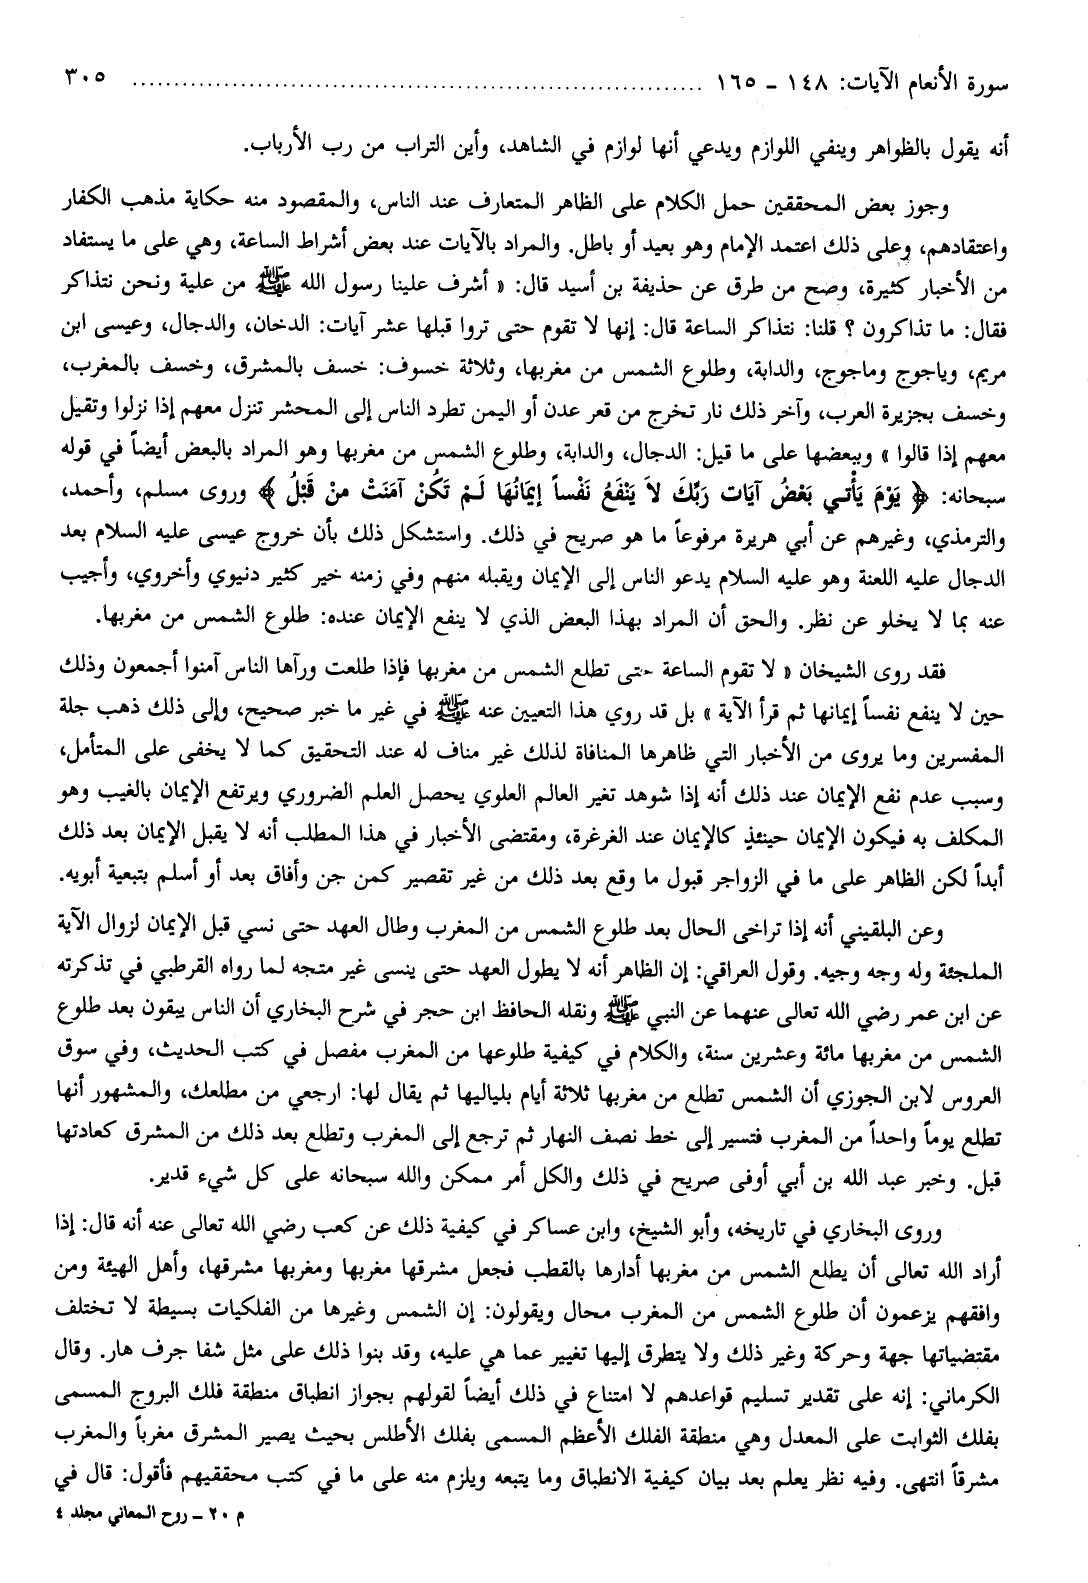 سورة الأنعام الآيات: ١٤٨ ـ ١٦٥ ............................................................ ٣٠٥
أنه يقول بالظواهر وينفي اللوازم ويدعي أنها لوازم في الشاهد، وأين التراب من رب الأرباب.
وجوز بعض المحققين حمل الكلام على الظاهر المتعارف عند الناس، والمقصود منه حكاية مذهب الكفار
واعتقادهم، وعلى ذلك اعتمد الإمام وهو بعيد أو باطل. والمراد بالآيات عند بعض أشراط الساعة، وهي على ما يستفاد
من الأخبار كثيرة، وصح من طرق عن حذيفة بن أسيد قال: « أشرف علينا رسول الله ﷺ من علية ونحن نتذاكر
فقال: ما تذاكرون ؟ قلنا: نتذاكر الساعة قال: إنها لا تقوم حتى تروا قبلها عشر آيات: الدخان، والدجال، وعيسى ابن
مريم، وياجوج وماجوج، والدابة، وطلوع الشمس من مغربها، وثلاثة خسوف: خسف بالمشرق، وخسف بالمغرب،
وخسف بجزيرة العرب، وآخر ذلك نار تخرج من قعر عدن أو اليمن تطرد الناس إلى المحشر تنزل معهم إذا نزلوا وتقيل
معهم إذا قالوا » وببعضها على ما قيل: الدجال، والدابة، وطلوع الشمس من مغربها وهو المراد بالبعض أيضاً في قوله
سبحانه: ﴿ يَوْمَ يَأْتي بَعْضُ آيَات رَبِّكَ لاَ يَنْفَعُ نَفْساً إيمَانُهَا لَمْ تَكُنْ آمَنَتْ منْ قَبْلُ ﴾ وروى مسلم، وأحمد،
والترمذي، وغيرهم عن أبي هريرة مرفوعاً ما هو صريح في ذلك. واستشكل ذلك بأن خروج عيسى عليه السلام بعد
الدجال عليه اللعنة وهو عليه السلام يدعو الناس إلى الإيمان ويقبله منهم وفي زمنه خير كثير دنيوي وأخروي، وأجيب
عنه بما لا يخلو عن نظر. والحق أن المراد بهذا البعض الذي لا ينفع الإيمان عنده: طلوع الشمس من مغربها.
فقد روى الشيخان « لا تقوم الساعة حتى تطلع الشمس من مغربها فإذا طلعت ورآها الناس آمنوا أجمعون وذلك
حين لا ينفع نفساً إيمانها ثم قرأ الآية » بل قد روي هذا التعيين عنه ﷺ في غير ما خبر صحيح، وإلى ذلك ذهب جلة
المفسرين وما يروى من الأخبار التي ظاهرها المنافاة لذلك غير مناف له عند التحقيق كما لا يخفى على المتأمل،
وسبب عدم نفع الإيمان عند ذلك أنه إذا شوهد تغير العالم العلوي يحصل العلم الضروري ويرتفع الإيمان بالغيب وهو
المكلف به فيكون الإيمان حينئذٍ كالإيمان عند الغرغرة، ومقتضى الأخبار في هذا المطلب أنه لا يقبل الإيمان بعد ذلك
أبداً لكن الظاهر على ما في الزواجر قبول ما وقع بعد ذلك من غير تقصير كمن جن وأفاق بعد أو أسلم بتبعية أبويه.
وعن البلقيني أنه إذا تراخى الحال بعد طلوع الشمس من المغرب وطال العهد حتى نسي قبل الإيمان لزوال الآية
الملجئة وله وجه وجيه. وقول العراقي: إن الظاهر أنه لا يطول العهد حتى ينسى غير متجه لما رواه القرطبي في تذكرته
عن ابن عمر رضي الله تعالى عنهما عن النبي ﷺ ونقله الحافظ ابن حجر في شرح البخاري أن الناس يبقون بعد طلوع
الشمس من مغربها مائة وعشرين سنة، والكلام في كيفية طلوعها من المغرب مفصل في كتب الحديث، وفي سوق
العروس لابن الجوزي أن الشمس تطلع من مغربها ثلاثة أيام بلياليها ثم يقال لها: ارجعي من مطلعك، والمشهور أنها
تطلع يوماً واحداً من المغرب فتسير إلى خط نصف النهار ثم ترجع إلى المغرب وتطلع بعد ذلك من المشرق كعادتها
قبل. وخبر عبد الله بن أبي أوفى صريح في ذلك والكل أمر ممكن والله سبحانه على كل شيء قدير.
وروى البخاري في تاريخه، وأبو الشيخ، وابن عساكر في كيفية ذلك عن كعب رضي الله تعالى عنه أنه قال: إذا
أراد الله تعالى أن يطلع الشمس من مغربها أدارها بالقطب فجعل مشرقها مغربها ومغربها مشرقها، وأهل الهيئة ومن
وافقهم يزعمون أن طلوع الشمس من المغرب محال ويقولون: إن الشمس وغيرها من الفلكيات بسيطة لا تختلف
مقتضياتها جهة وحركة وغير ذلك ولا يتطرق إليها تغيير عما هي عليه، وقد بنوا ذلك على مثل شفا جرف هار. وقال
الكرماني: إنه على تقدير تسليم قواعدهم لا امتناع في ذلك أيضاً لقولهم بجواز انطباق منطقة فلك البروج المسمى
بفلك الثوابت على المعدل وهي منطقة الفلك الأعظم المسمى بفلك الأطلس بحيث يصير المشرق مغرباً والمغرب
مشرقاً انتهى. وفيه نظر يعلم بعد بيان كيفية الانطباق وما يتبعه ويلزم منه على ما في كتب محققيهم فأقول: قال في
م ٢٠ ـ روح المعاني مجلد ٤